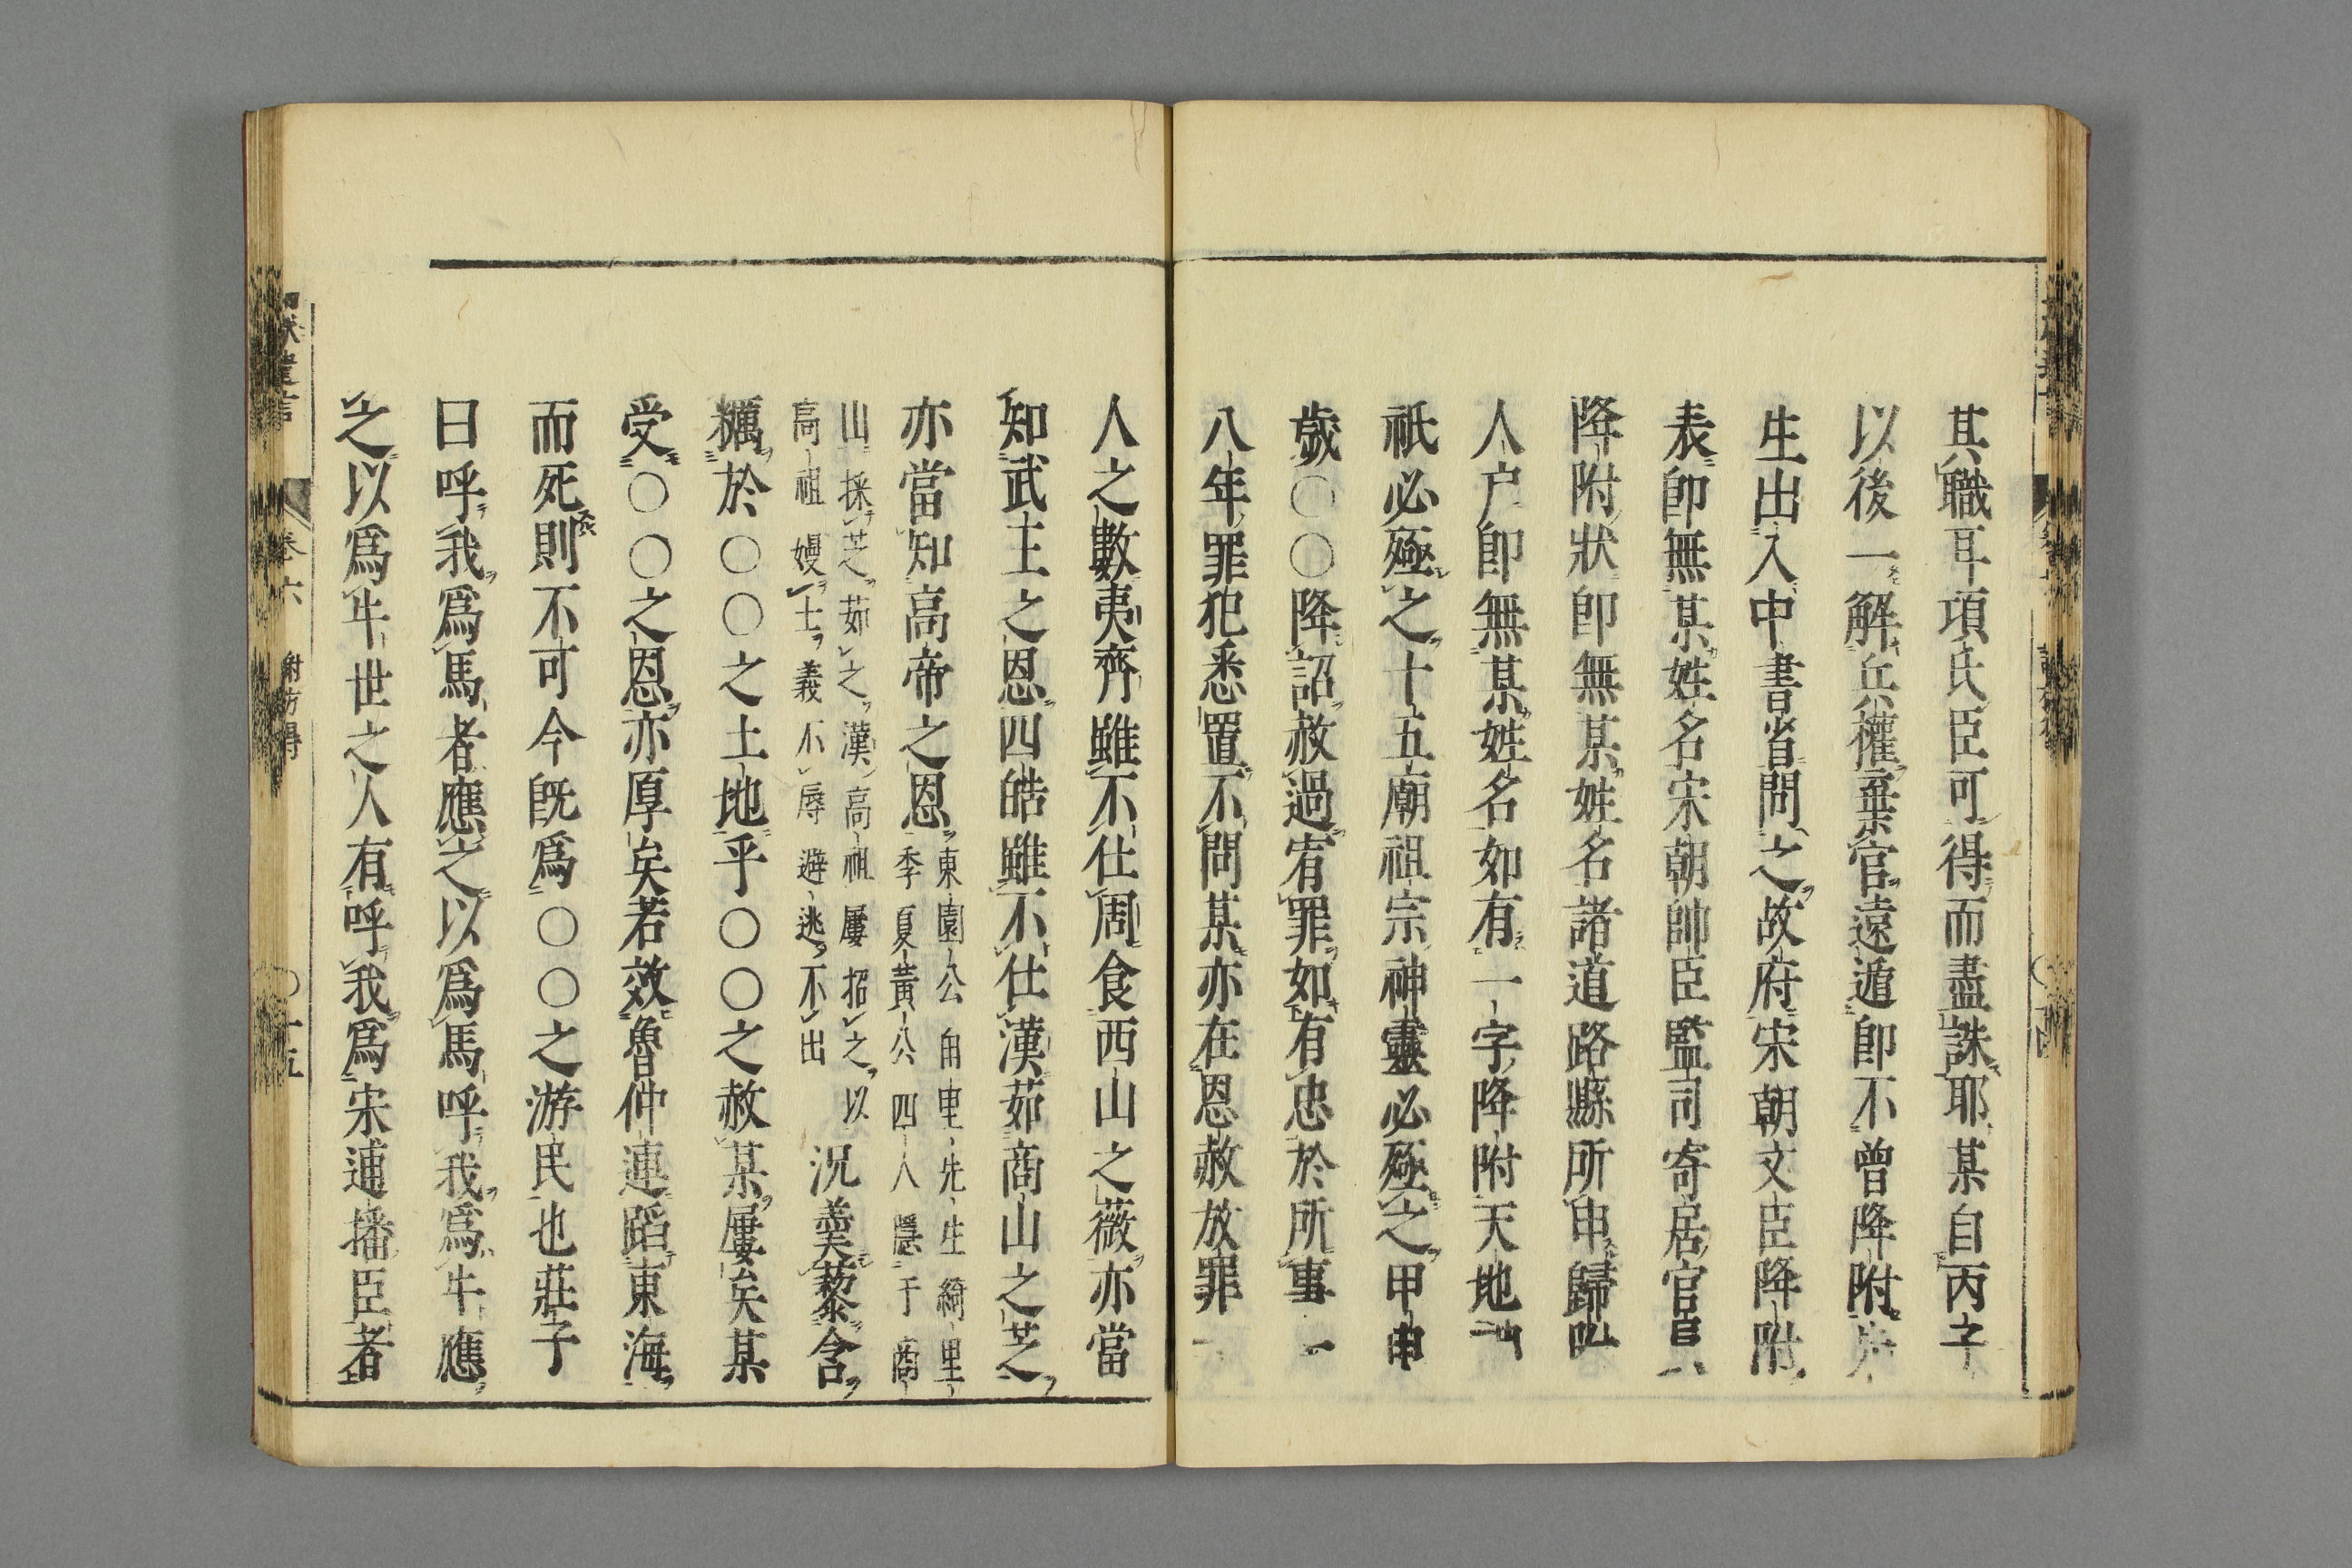 其職耳項氏臣可得而盡誅耶某自丙子
以後一解兵權棄官遠遁即不曾降附
生出入中書省問之故府宋朝文臣降附
表即無某姓名宋朝帥臣監司寄居官員
降附狀即無某姓名諸道路縣所申歸附
人户即無某姓名如有一字降附天地
祇必殛之十五廟祖宗神靈必殛之甲申
歲〇〇降詔赦過宥罪如有忠於所事
八年罪犯悉置不問某亦在恩赦放罪一
人之數夷齊雖不仕周食西山之薇亦當
知武王之恩四皓雖不仕漢茹商山之芝
亦當知高帝之恩
東園公甪里先生綺里
季夏黃公四人隱于商
山採芝茹之漢高祖屢招之以
高祖嫚士義不辱避逃不出
況羹藜含
糲於〇〇之土地乎〇〇之赦某屢矣某
受〇〇之恩亦厚矣若效魯仲連蹈東海
而死則不可今既爲〇〇之游民也莊子
曰呼我爲馬者應之以爲馬呼我爲牛應
之以爲牛世之人有呼我爲宋逋播臣者
遺言
卷六
謝枋得
〇十五